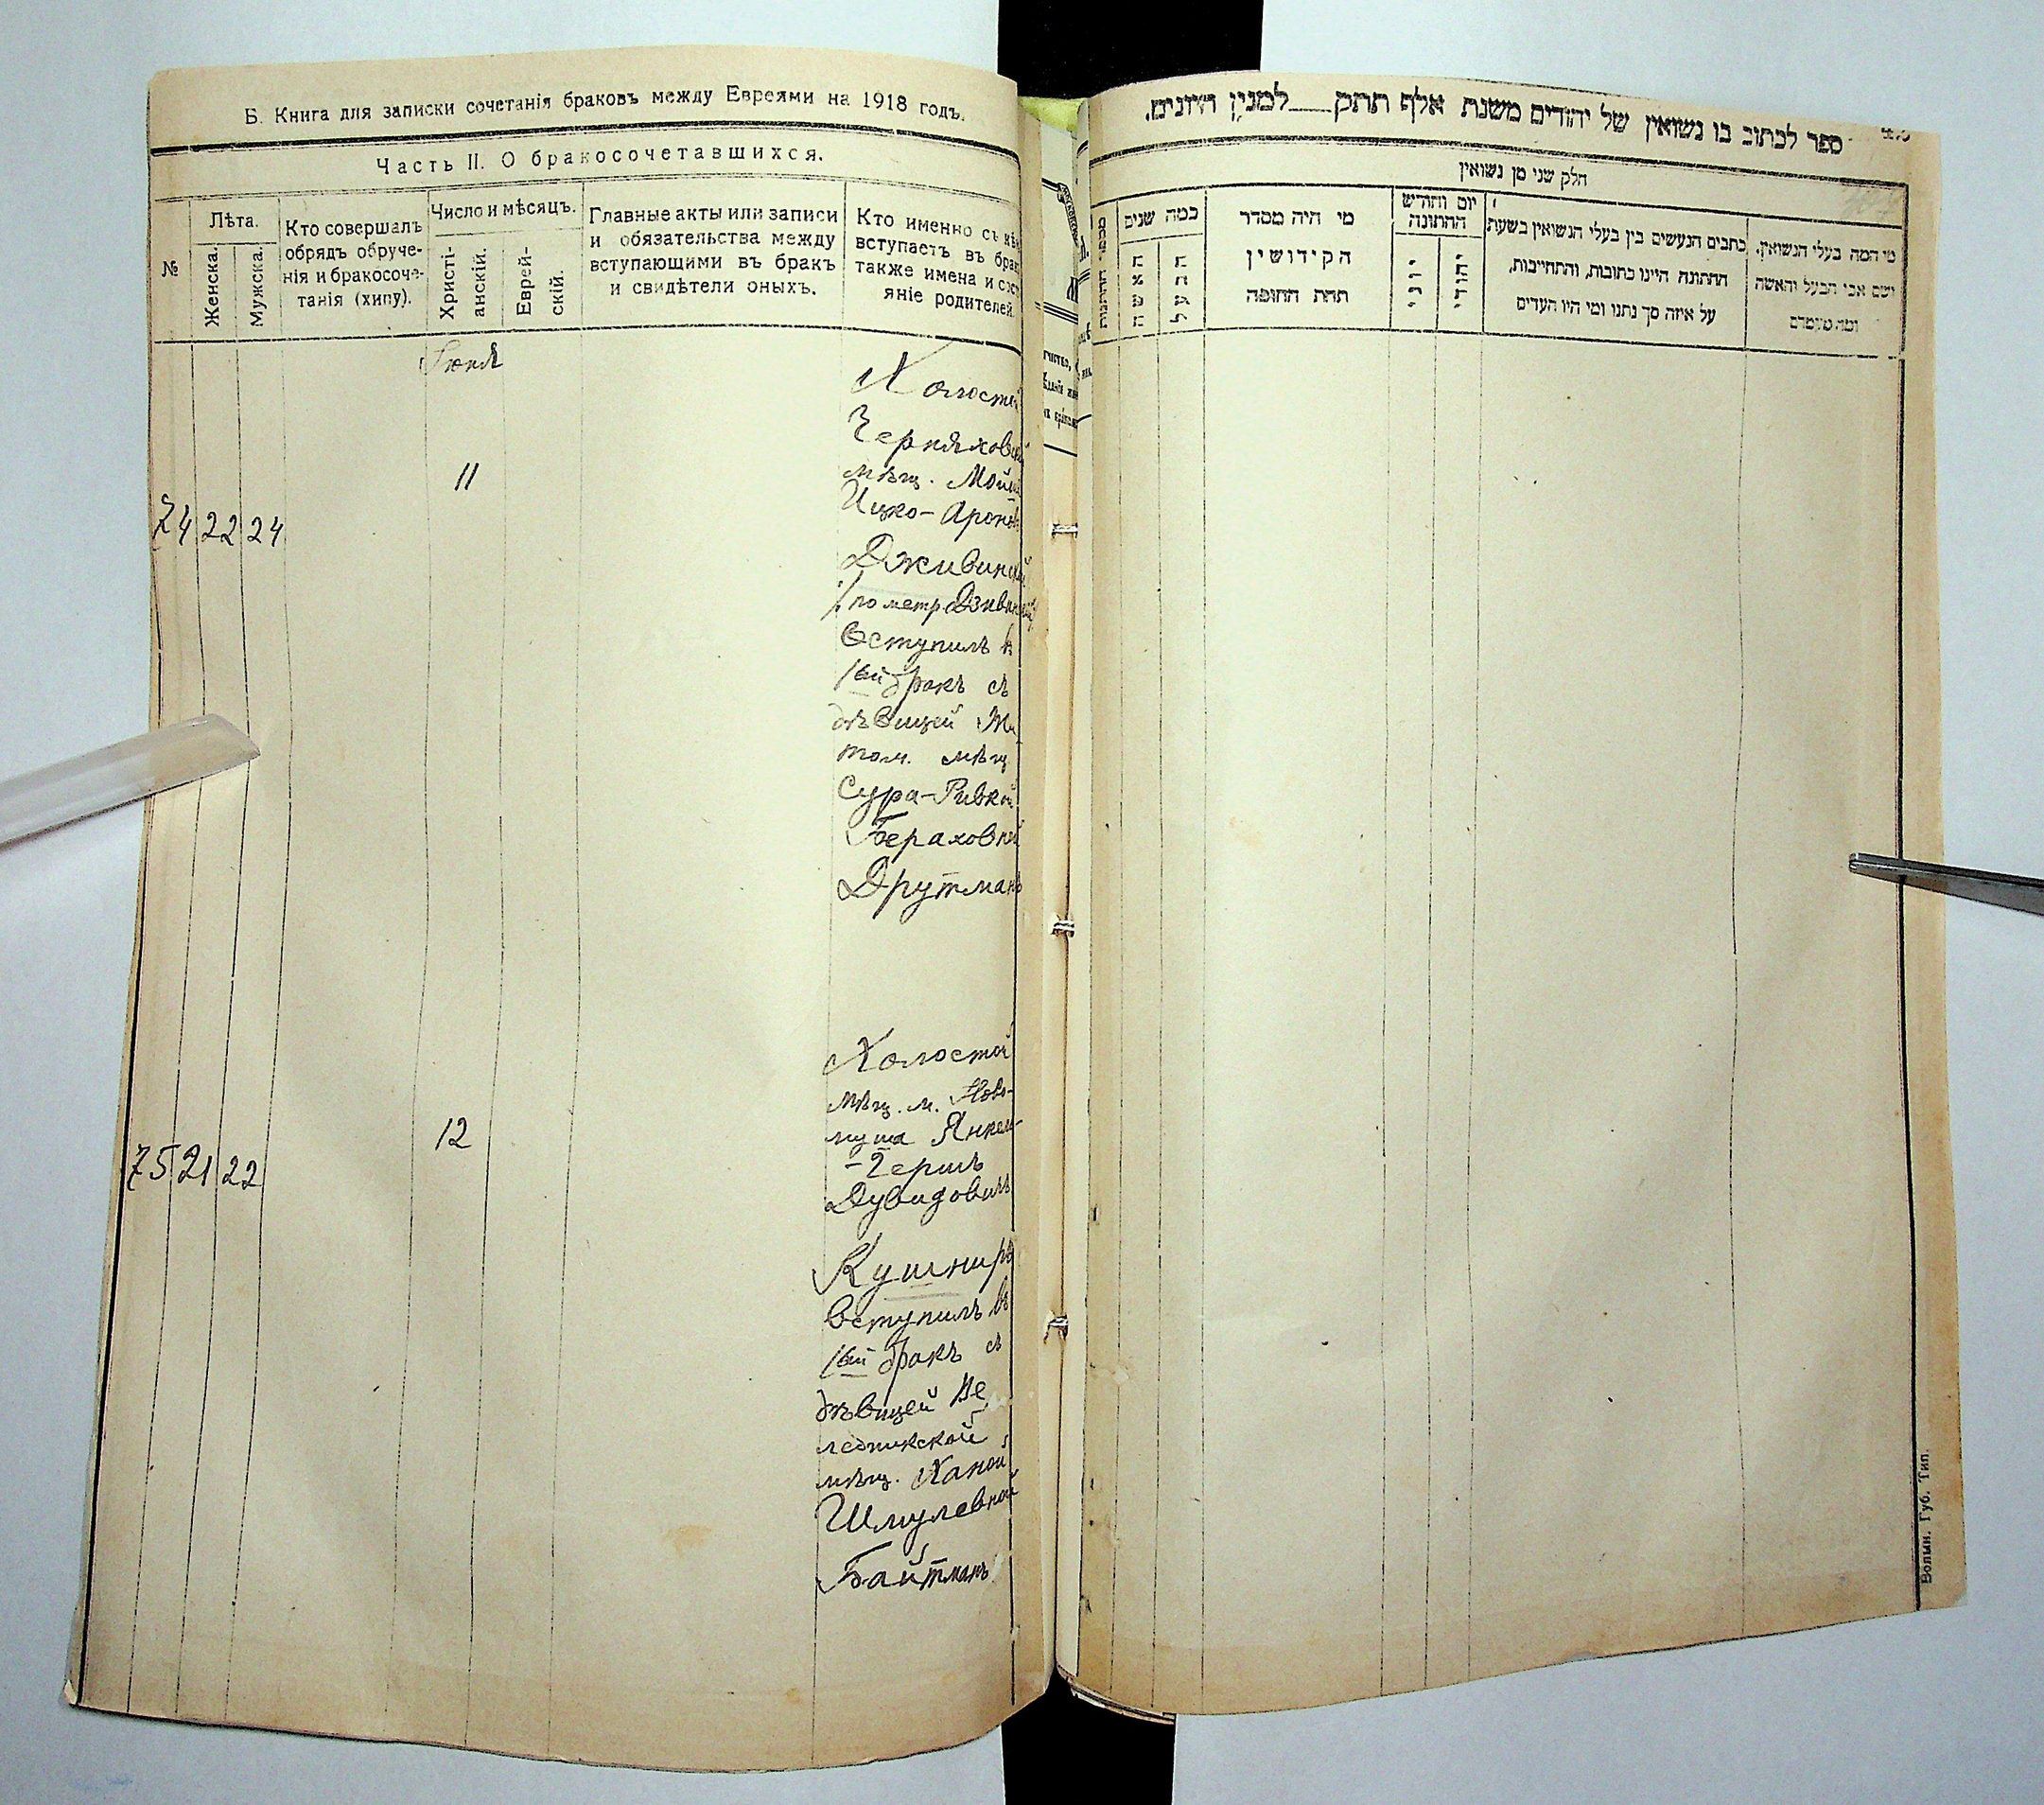 Б. Книга для записки сочетанія браковъ между Евреями на 1918 годъ.
Часть II. О бракосочетавшихся.
№
Лѣта.
Женска.
Мужска.
Кто совершалъ
обрядъ обруче-
нія и бракосоче-
танія (хипу).
Число и мѣсяцъ.
Христі-
анскій.
Еврей-
скій.
Главные акты или записи
и обязательства между
вступающими въ бракъ
и свидѣтели оныхъ.
Кто именно съ
вступаетъ въ брак
также имена и сос
яніе родителей.
Іюня
74 22 24
11
Холостой
Черняховскій
мѣщ. Мойше
Ицко-Аронов
Дживинскій
(по метр. Дзивинскій)
Вступилъ въ
1ый бракъ съ
дѣвицей Жи
том. мѣщ
Сура-Ривкой
Бераховной
Друтманъ
75 21 22
12
Холостой
мѣщ. м. Ново-
пуша Янкель-
-Гершъ
Дувидовичъ
Кушниръ
Вступилъ въ
1ый бракъ съ
дѣвицей Ве
ледникской
мѣщ. Ханой
Шмулевной
Байтманъ
ספר לכתוב בו נשואין של יהודים משנת אלף תתק למנין היונים.
חלק שני מן נשואין
מספר החתונות
כמה שנים
האשה
הבעל
מי היה מסדר
הקידושין
תחת החופה
יום וחודש
החתונה
יוני
יהודי
כתבים הנעשים בין בעלי הנשואין בשעת
החתונה היינו כתובות, והתחייבות,
על איזה סך נתנו ומי היו העדים
מי המה בעלי הנשואין,
ושם אבי הבעל והאשה
ומה מעמדם
Волын. Губ. Тип.